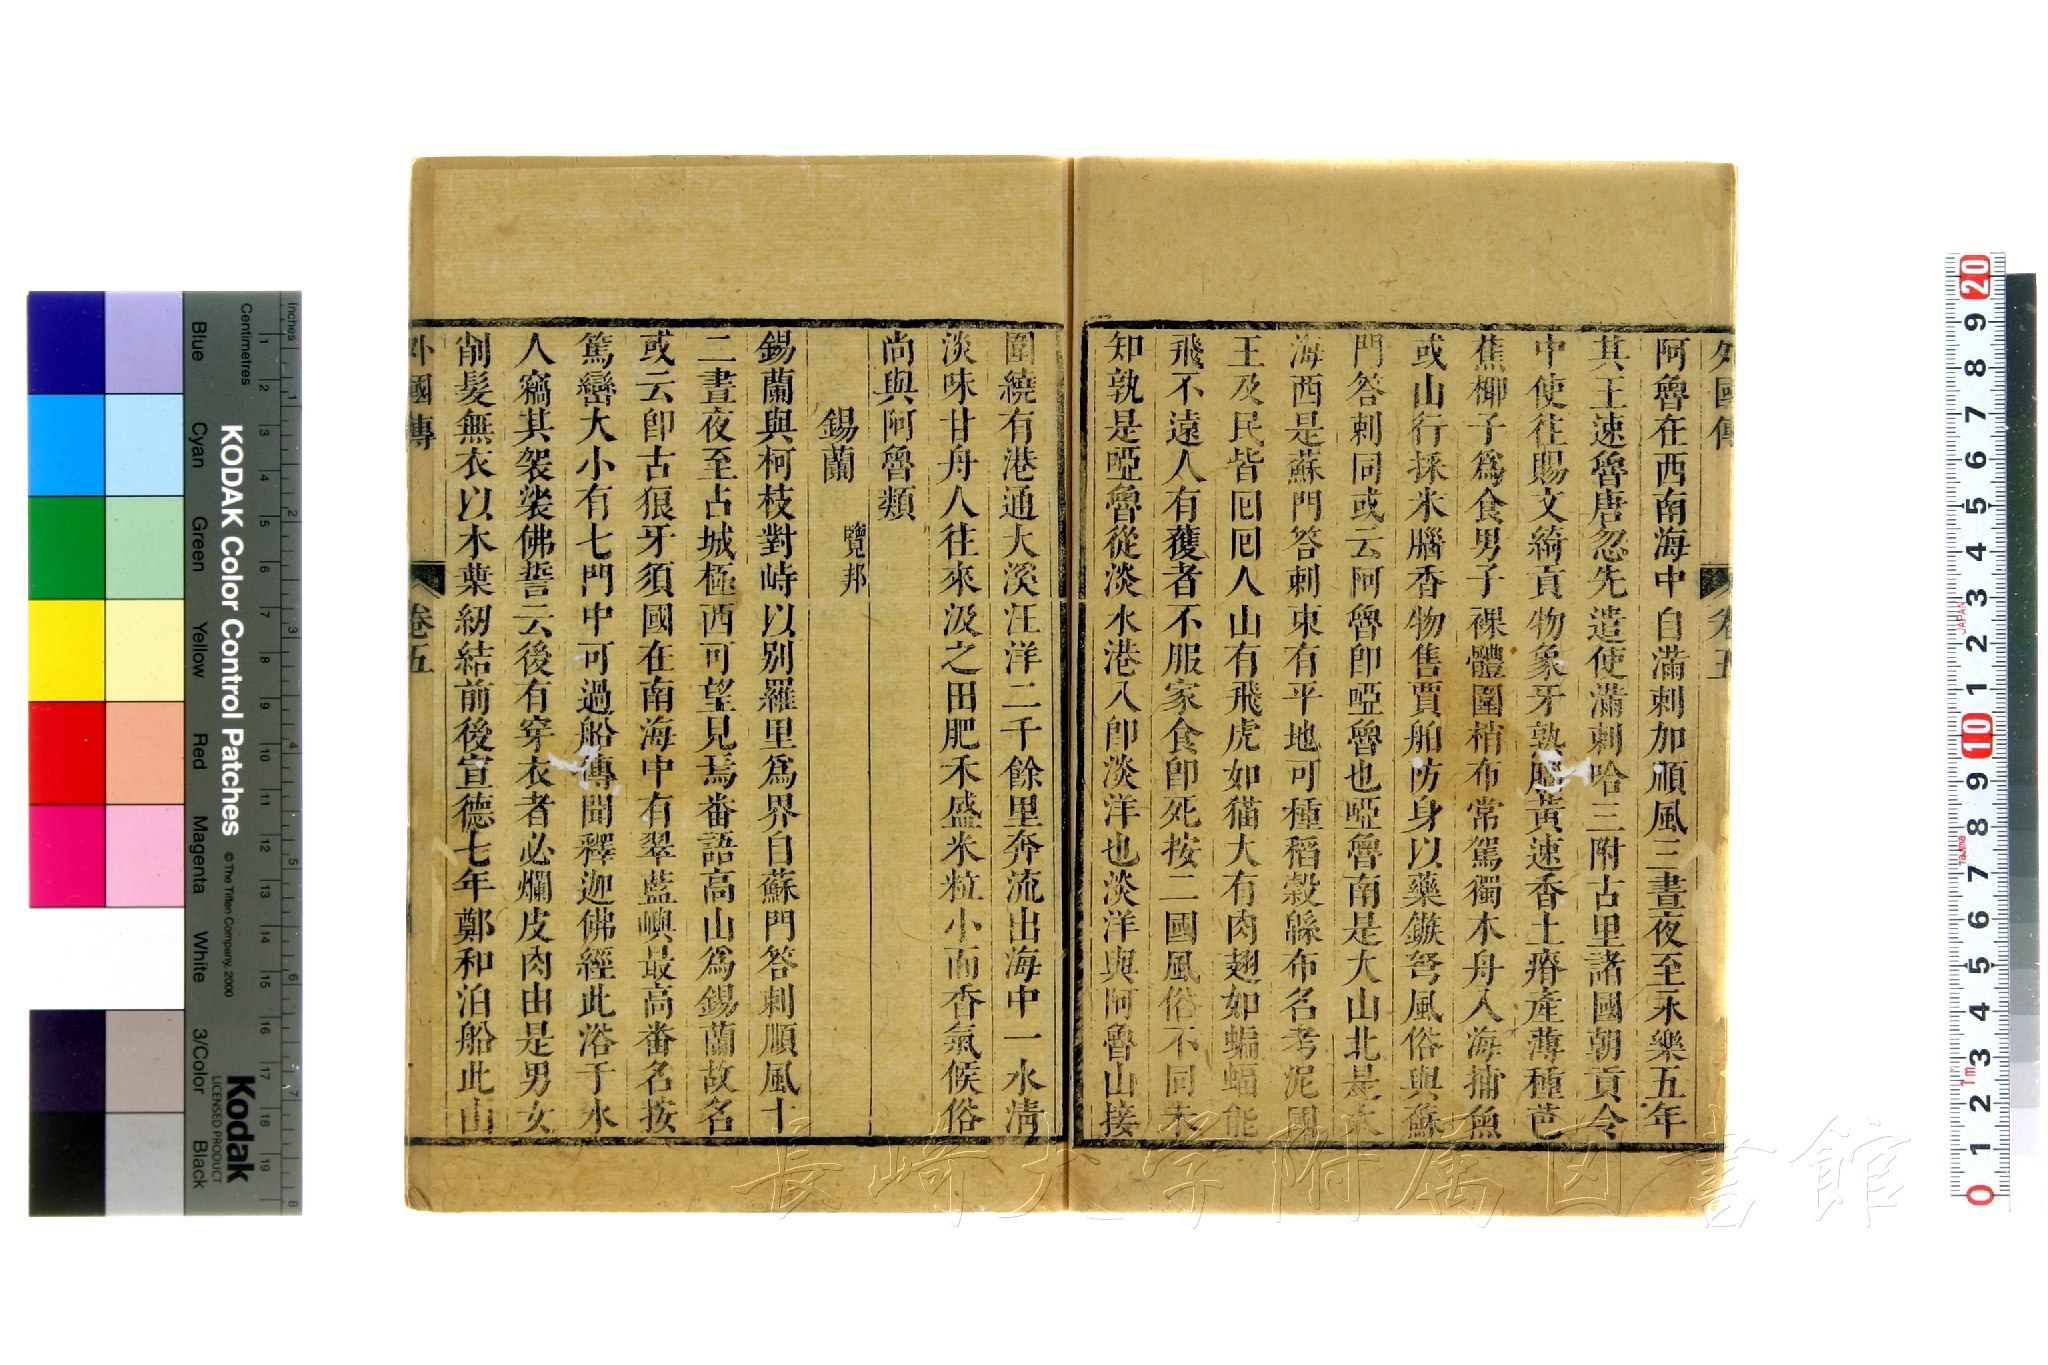 外國傳 卷五
阿魯在西南海中自滿剌加順風三晝夜至永樂五年
其王速魯唐忽先遣使滿剌哈三附古里諸國朝貢令
中使往賜文綺貢物象牙熟腦黃速香土瘠產薄種芭
蕉椰子爲食男子裸體圍梢布常駕獨木舟入海捕魚
或山行採米腦香物售賈舶防身以藥鏃弩風俗與蘇
門答剌同或云阿魯卽啞魯也啞魯南是大山北是大
海西是蘇門答剌東有平地可種稻穀緜布名考泥國
王及民皆囘囘人山有飛虎如猫大有肉翅如蝙蝠能
飛不遠人有獲者不服家食卽死按二國風俗不同未
知孰是啞魯從淡水港入卽淡洋也淡洋與阿魯山接
圍繞有港通大溪汪洋二千餘里奔流出海中一水清
淡味甘舟人往來汲之田肥禾盛米粒小而香氣候俗
尚與阿魯類
錫蘭 覽邦
錫蘭與柯枝對峙以别羅里爲界自蘇門答剌順風十
二晝夜至占城極西可望見焉番語高山爲錫蘭故名
或云卽古狼牙須國在南海中有翠藍嶼最高番名按
篤巒大小有七門中可過船傳聞釋迦佛經此浴于水
人竊其袈裟佛誓云後有穿衣者必爛皮肉由是男女
削髮無衣以木葉紉結前後宣德七年鄭和泊船此山
外國傳 卷五
長崎大学附属図書館
KODAK Color Control Patches
© The Tiffen Company, 2000
Kodak
LICENSED PRODUCT
Inches
Centimetres
Blue
Cyan
Green
Yellow
Red
Magenta
White
3/Color
Black